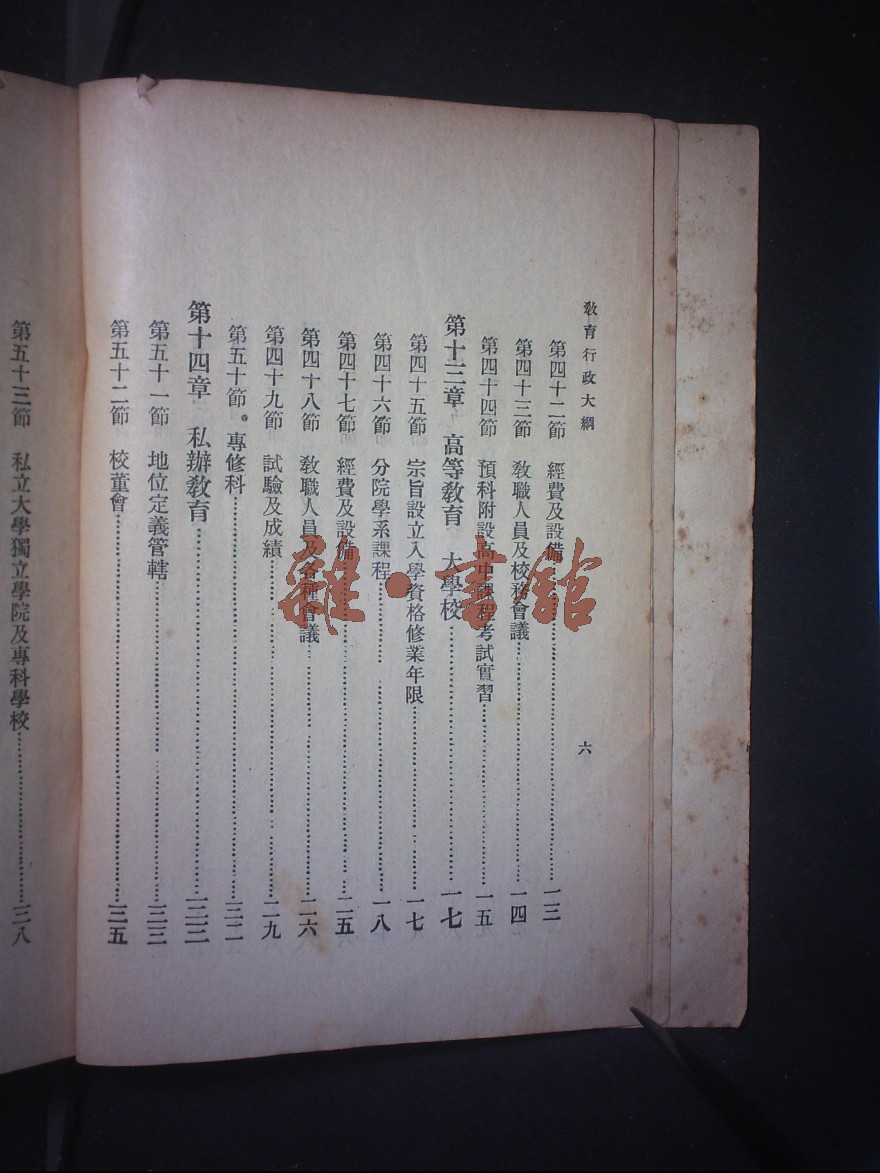 教育行政大綱
六
第四十二節 經費及設備……一三
第四十三節 教職人員及校務會議……一四
第四十四節 預科附設高中課程考試實習……一五
第十三章 高等教育 大學校……一七
第四十五節 宗旨設立入學資格修業年限……一七
第四十六節 分院學系課程……一八
第四十七節 經費及設備……二五
第四十八節 教職人員及各種會議……二六
第四十九節 試驗及成績……二九
第五十節。專修科……三二
第十四章 私辦教育……三三
第五十一節 地位定義管轄……三三
第五十二節 校董會……三五
第五十三節 私立大學獨立學院及專科學校……三八
雜·書館